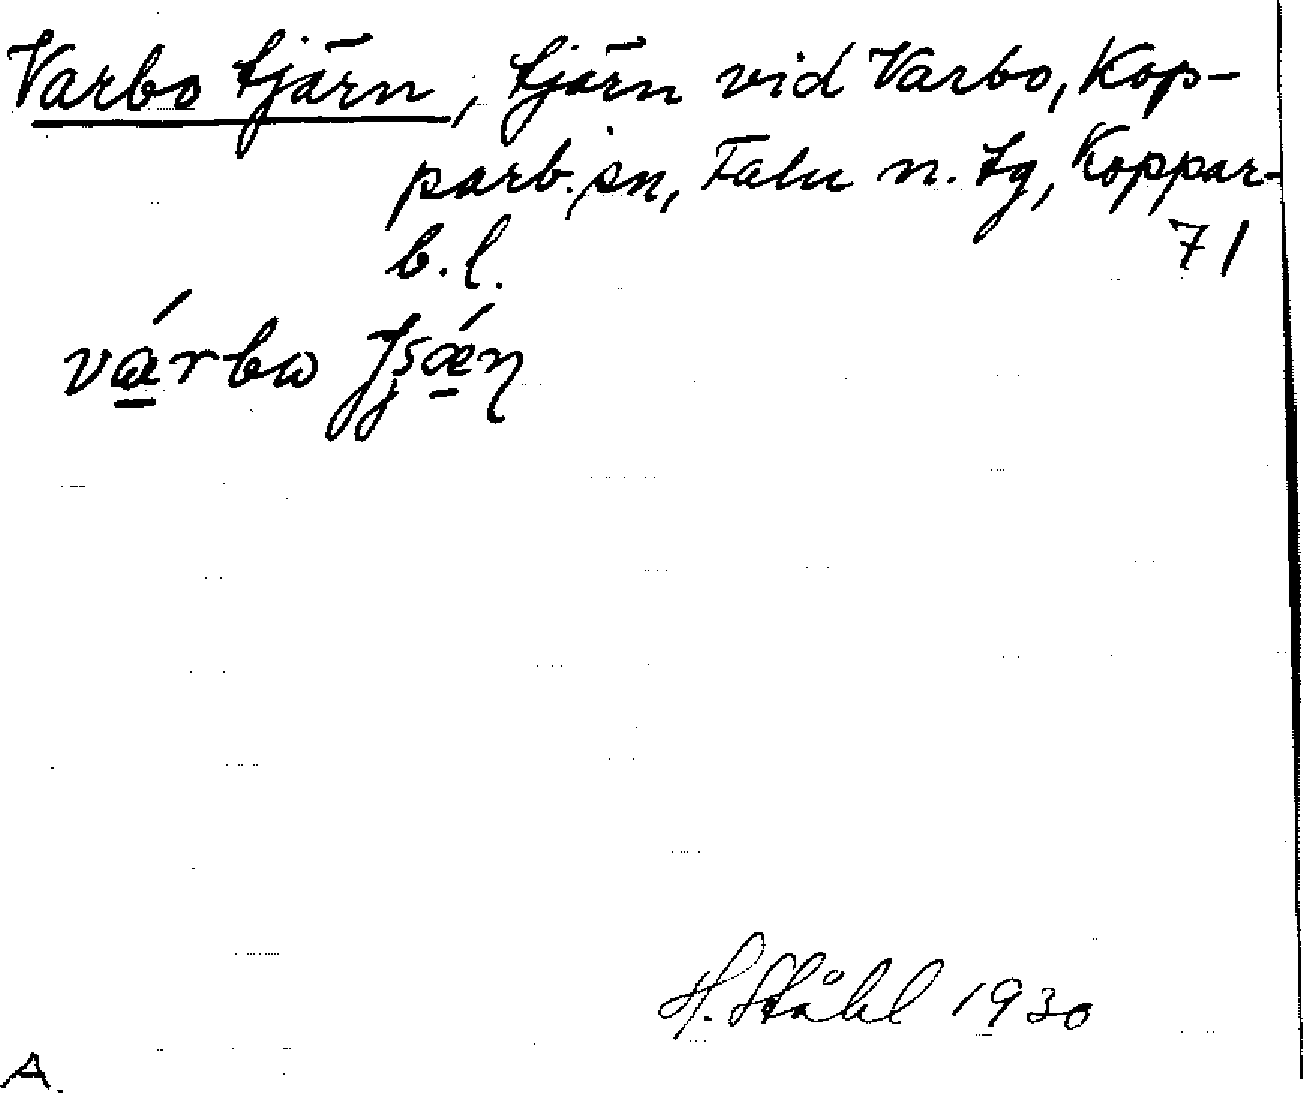 Varbo tjärn, tjärn vid Varbo, Kop-
parb. sn, Falu n. tg, Koppar-
b.l. 71
H. Ståhl 1930
A.